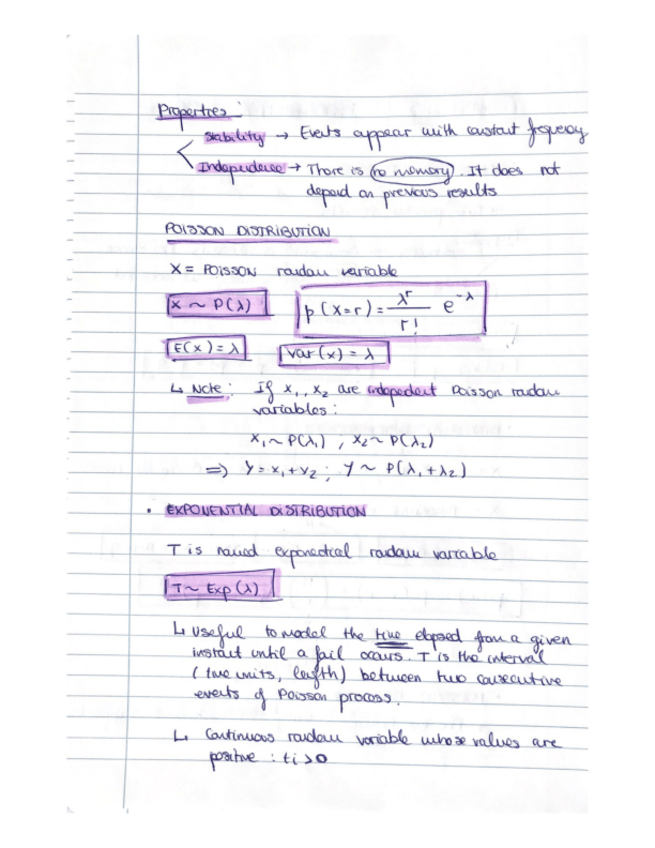 Properties:
Stability → Events appear with constant frequency
Independence → There is no memory. It does not
depend on previous results
POISSON DISTRIBUTION
X = POISSON random variable
X ~ P(λ) p(X=r) = λ^r / r! e^-λ
E(x) = λ Var(x) = λ
↳ Note: If x₁, x₂ are independent Poisson random
variables:
x₁ ~ P(λ₁) ; x₂ ~ P(λ₂)
⇒ Y = x₁ + x₂ ; Y ~ P(λ₁ + λ₂)
• EXPONENTIAL DISTRIBUTION
T is named exponential random variable
T ~ Exp(λ)
↳ Useful to model the time elapsed from a given
instant until a fail occurs. T is the interval
(time units, length) between two consecutive
events of Poisson process.
↳ Continuous random variable whose values are
positive : ti > 0